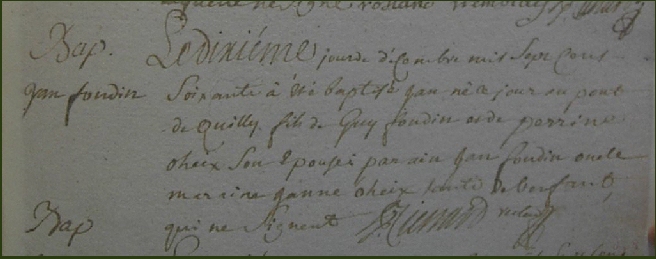 qui ne signe
Bap. Le dixiéme jour de décembre mil sept cens
Jan foudin soixante à été baptisé Jan né ce jour au pont
de Quilly fils de Guy foudin et de perrine
oheix son Epouse; parain Jan foudin oncle
maraine Janne oheix tante de l'enfant,
Bap qui ne signent